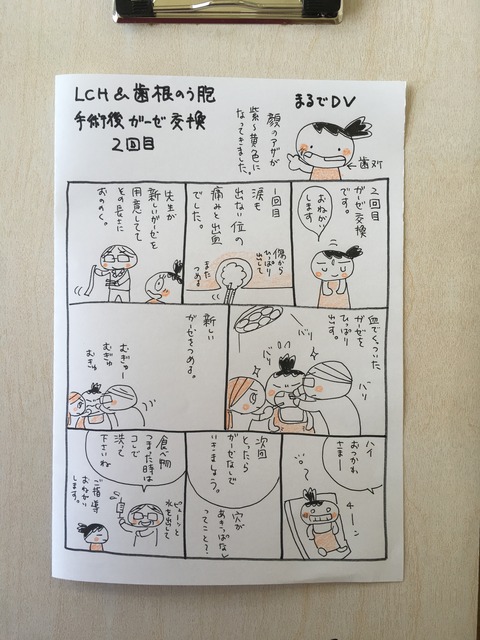 LCH&歯根のう胞
手術後ガーゼ交換
2回目
まるでDV
顔のアザが
紫〜黄色に
なってきました。
←歯ヌケ
2回目
ガーゼ交換
です。
おねがい
します
1回目
涙も
出ない位の
痛みと出血
でした。
傷から
ひっぱり
出して
また
つめる
先生が
新しいガーゼを
用意してて
その長さに
おののく。
血でくっついた
ガーゼを
ひっぱり
出す。
バリ
バリ
バリ
新しい
ガーゼをつめる。
むぎゅー
むぎゅ
むぎゅ
ハイ
おつかれ
さまー
チーン
次回
とったら
ガーゼなしで
いきましょう。
穴が
あきっぱなし
ってこと?
食べ物
つまった時は
コレで
洗って
下さいね
ピューッと
水を出して
ご指導
おねがい
します。